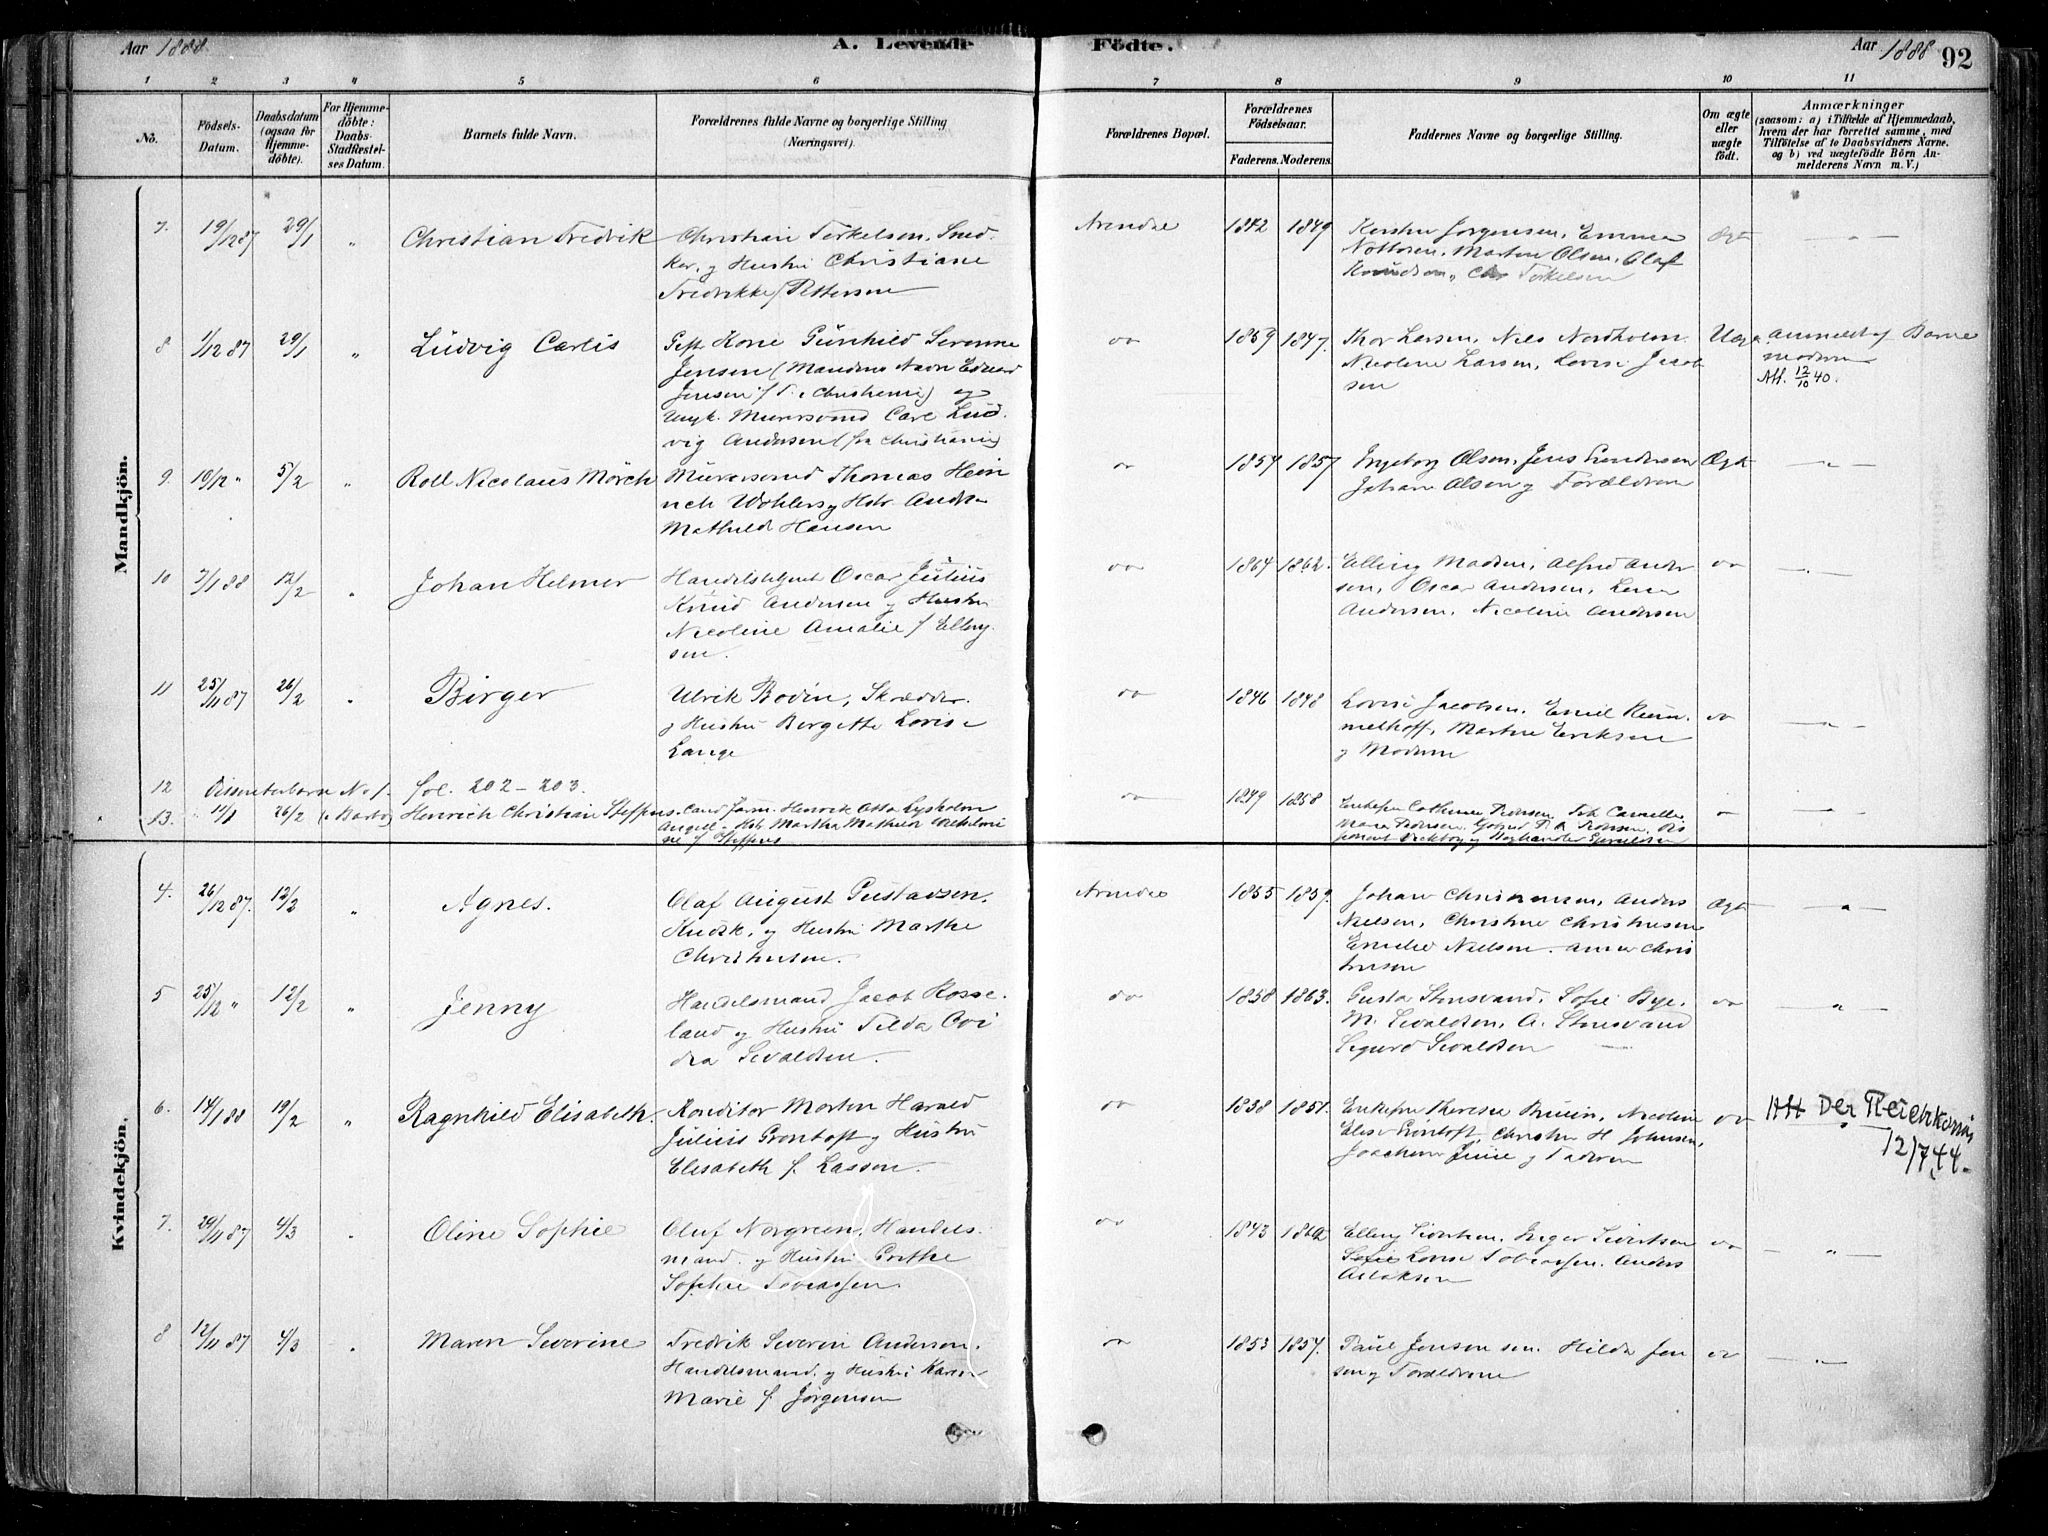 Aar 1888 A. Levende Födte. Aar 1888 92
1 2 3 4 5 6 7 8 9 10 11
No. Födsels-Datum. Daabsdatum (ogsaa for Hjemmedöbte). For Hjemmedöbte: Daabs-Stadfæstelses Datum. Barnets fulde Navn. Forældrenes fulde Navne og borgerlige Stilling (Næringsvei). Forældrenes Bopæl. Forældrenes Födselsaar. Faderens. Moderens. Faddernes Navne og borgerlige Stilling. Om ægte eller uægte födt. Anmærkninger (saasom: a) i Tilfælde af Hjemmedaab, hvem der har forrettet samme, med Tilföielse af to Daabsvidners Navne. og b) ved uægtefödte Börn Anmelderens Navn m. V.)
Mandkjön.
7. 19/12 87 29/1 " Christian Fredrik Christian Terkelsen, Sned- Arendal 1842 1849 Kirstine Jørgensen, Emma Ægt — " —
ker, og Hustru Christiane Nottosen, Martin Olsen, Olaf
Fredrikke Pettersen Knudsen, Chr Terkelsen
8 1/12 87 29/1 " Ludvig Carlis Gift Kone Gunhild Serenne do 1859 1847. Thor Larsen, Nils Nordholm Uæg. anmeldt af Barne
Jensen (Mandens Navn Edvard Nicoline Larsen, Lovise Jacob moderen
Jensen f. T. i Christiania) og sen Att. 12/10 40.
Ungk. Murersvend Carl Lud-
vig Andersen (fra Christiania)
9. 10/12 " 5/2 " Roll Nicolaus Mörch Murersvend Thomas Hein do 1854 1857 Ingeborg Olsen, Jens Gundersen Ægt — " —
rich Wohlers og Hstr. Andrea Johan Olsen og Forældrene
Mathilde Hansen
10 7/1 88 12/2 " Johan Helmer Handelsbetjent Oscar Julius do 1864 1862. Elling Madsen, Alfred Ander do — " —
Knud Andersen og Hustru sen, Oscar Andersen, Lena
Nicoline Amalie f. Elling- Andersen, Nicoline Andersen
sen.
11 25/11 87 26/2 " Birger Ulrik Bodin, Skrædder do 1846 1848 Lovise Jacobsen, Emil Rum- do — " —
og Hustru Bergette Lovise melhoff, Martine Eriksen
Lange og Moderen
12 Dissenterbarn No 1. fol. 202–203.
13. 11/1 26/2 Henrich Christian Steffens Cand. farm. Henrik Otto Lysholm do 1849 1858 Enkefru Cathrine Pedersen, do — " —
Angell og Hstr Martha Mathilde Wilhelmi
ne f. Steffens
Kvindekjön.
4. 26/12 87. 12/2 " Agnes. Olaf August Gustavsen, Arendal 1855 1859. Johan Christensen, Anders Ægt — " —
Kudsk, og Hustru Marthe Nielsen, Christine Christensen
Christensen. Emelie Nielsen. Anna Chris
tensen
5 25/12 " 12/2 " Jenny Handelsmand Jacob Rosse- do 1858 1863. Gusta Stensvand, Sofie Bye, do — " —
land og Hustru Tilda Ovi M. Sivaldsen, A. Stensvand
dea Sivaldsen. Sigurd Sivaldsen
6. 14/1 88 19/2 " Ragnhild Elisabeth. Konditor Morten Harald do 1838 1851. Enkefru Therese Bruun, Nicoline do Att Der Reichkomis
Julius Grøntoft og Hustru Elise Grøntoft, Christen H. Johnsen, 12/7 44.
Elisabeth f. Lasson. Joachim June og Faderen
7. 29/11 87 4/3 " Oline Sophie Oluf Norgreen, Handels- do 1843 1862 Elling Sivertsen, Inger Sivertsen do — " —
mand. og Hustru Grethe Sofie Lovise Tobiassen. Anders
Sophie Tobiassen. Aslaksen
8 12/11 87 4/3 " Maren Severine Fredrik Severin Andersen, do 1853 1857. Paul Jensen sen. Hilda Jen do — " —
Handelsmand. og Hustru Karen sen og Forældrene
Marie f. Jørgensen